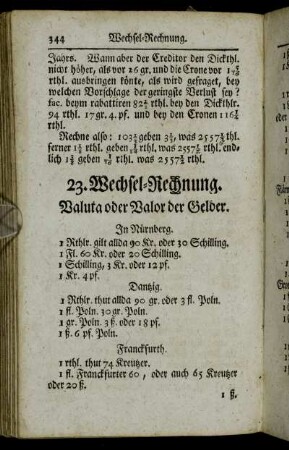 344 Wechsel-Rechnung.
Jahrs. Wann aber der Creditor den Dickthl.
nicht höher, als vor 16 gr. und die Crone vor
rthl. ausbringen könte, als wird gefraget, bey
welchen Vorschlage der geringste Verlust sey?
fac. beym rabattiren rthl. bey den Dickthlr.
94 rthl. 17 gr. 4. pf. und bey den Cronen
rthl.
Rechne also: geben was thl.
ferner rthl. geben rthl. was rthl. end-
lich geben rthl. was rthl.
23. Wechsel-Rechnung.
Valuta oder Valor der Gelder.
In Nürnberg.
1 Rthlr. gilt allda 90 Kr. oder 30 Schilling.
1 Fl. 60 Kr. oder 20 Schilling.
1 Schilling, 3 Kr. oder 12 pf.
1 Kr. 4 pf.
Dantzig.
1 Rthlr. thut allda 90 gr. oder 3 fl. Poln.
1 fl. Poln. 30 gr. Poln.
1 gr. Poln. 3 ß. oder 18 pf.
1 ß. 6 pf. Poln.
Franckfurth.
1 rthl. thut 74 Kreutzer.
1 fl. Franckfurter 60, oder auch 65 Kreutzer
oder 20 ß.
1 ß.